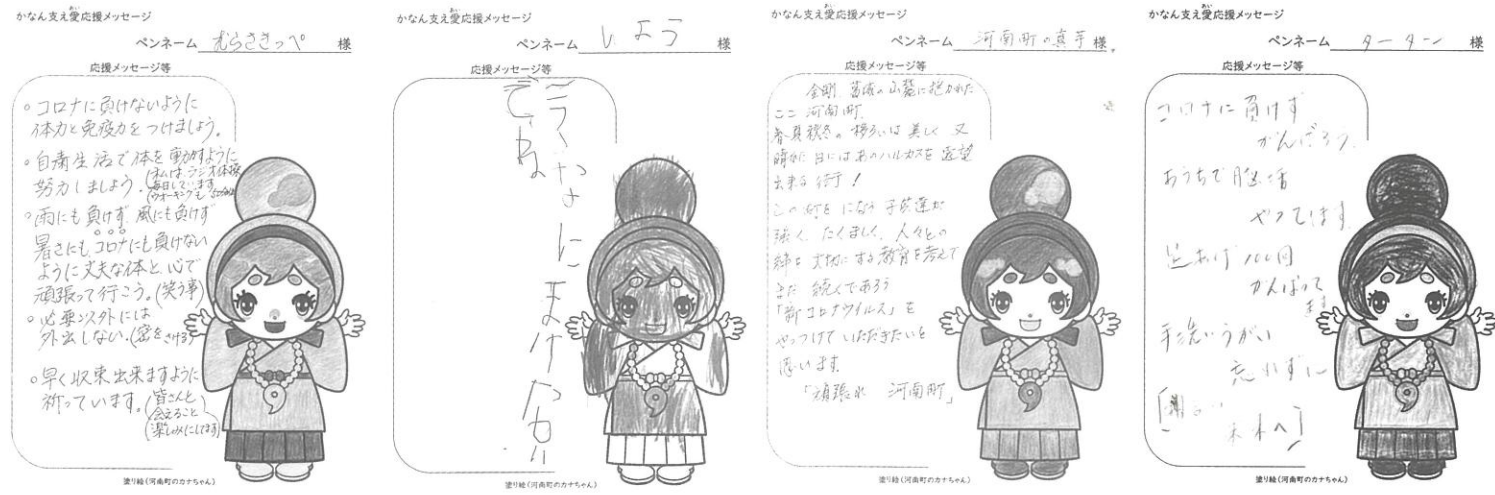 かなん支え愛応援メッセージ
ペンネーム むらさきっぺ 様
応援メッセージ等
○コロナに負けないように
体力と免疫力をつけましょう。
○自粛生活で体を動かすように
努力しましょう。
○雨にも負けず 風にも負けず
暑さにも、コロナにも負けない
ように丈夫な体と、心で
頑張って行こう。(笑う事)
○必要以外には
外出しない。(密をさける)
○早く収束出来ますように
祈っています。(皆さんと
会えること
楽しみにしてます)
塗り絵(河南町のカナちゃん)
かなん支え愛応援メッセージ
ペンネーム しょう 様
応援メッセージ等
塗り絵(河南町のカナちゃん)
かなん支え愛応援メッセージ
ペンネーム 河南町の真芋 様
応援メッセージ等
金剛 葛城の山麓に抱かれた
ここ 河南町
美しく 又
晴れた日にはあのハルカスを 遠望
出来る 行!
この町を になう 子供達が
強く、たくましく、人々との
絆を 大切にする教育を考えて
まだ 続くであろう
「新コロナウイルス」を
やっつけて いただきたいと
思います。
「頑張れ 河南町」
塗り絵(河南町のカナちゃん)
かなん支え愛応援メッセージ
ペンネーム ターターン 様
応援メッセージ等
コロナに負けず
がんばろう
おうちで脳活
やってます
足あげ100回
がんばって
ます
手洗いうがい
忘れずに
塗り絵(河南町のカナちゃん)